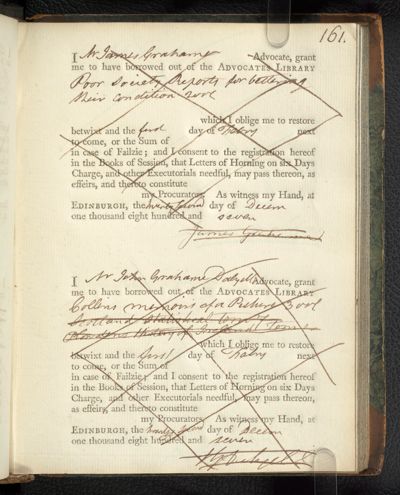 161.
I Mr James Grahame Advocate, grant
me to have borrowed out of the ADVOCATES LIBRARY
Poor Society Reports for bettering
their condition 2vol
which I oblige me to restore
betwixt and the first day of next
to come, or the Sum of
in case of Failzie; and I consent to the registration hereof
in the Books of Session, that Letters of Horning on six Days
Charge, and other Executorials needful, may pass thereon, as
effeirs, and thereto constitute
my Procurators. As witness my Hand, at
EDINBURGH, the twenty second day of Decem
one thousand eight hundred and seven
James Grahame
I Mr John Grahame Dalyell Advocate, grant
me to have borrowed out of the ADVOCATES LIBRARY
Collins memoirs of a Picture 2vol
Scotland Statistical
History of
which I oblige me to restore
betwixt and the first day of next
to come, or the Sum of
in case of Failzie; and I consent to the registration hereof
in the Books of Session, that Letters of Horning on six Days
Charge, and other Executorials needful, may pass thereon, as
effeirs, and thereto constitute
my Procurators. As witness my Hand, at
EDINBURGH, the twenty second day of Decem
one thousand eight hundred and seven